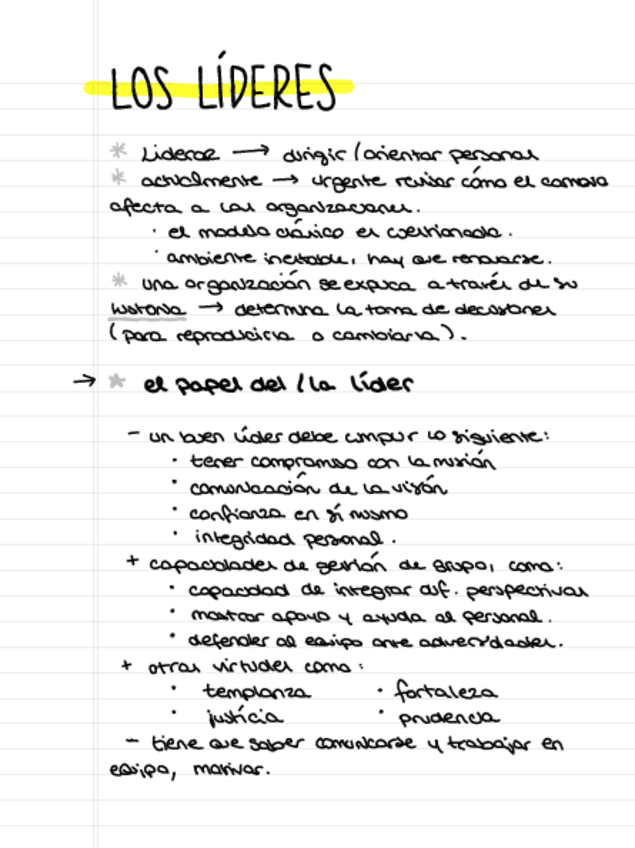 LOS LÍDERES
* Liderar → dirigir / orientar personas
* actualmente → urgente revisar cómo el cambio
afecta a las organizaciones.
· el modelo clásico es cuestionado.
· ambiente inestable, hay que renovarse.
* una organización se explica a través de su
historia → determina la toma de decisiones
(para reproducirla o cambiarla).
→ * el papel del / la líder
- un buen líder debe cumplir lo siguiente:
· tener compromiso con la misión
· comunicación de la visión
· confianza en sí mismo
· integridad personal.
+ capacidades de gestión de grupo, como:
· capacidad de integrar dif. perspectivas
· mostrar apoyo y ayuda al personal.
· defender al equipo ante adversidades.
+ otras virtudes como:
· templanza · fortaleza
· justicia · prudencia
- tiene que saber comunicarse y trabajar en
equipo, motivar.